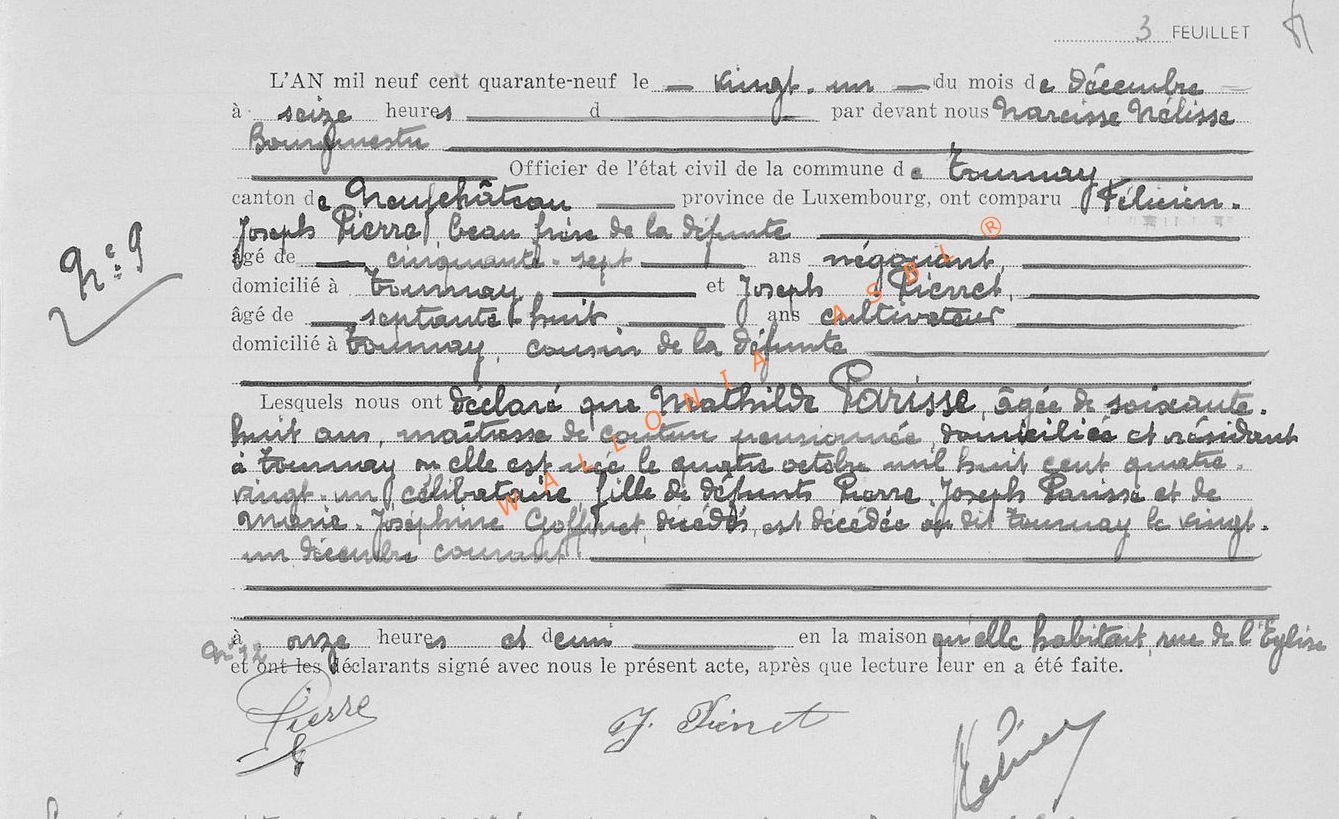 3 FEUILLET
L'AN mil neuf cent quarante-neuf le — vingt-un — du mois de décembre
à seize heures d par devant nous Narcisse Nélisse
Bourgmestre
Officier de l'état civil de la commune de Tournay
canton de Neufchâteau province de Luxembourg, ont comparu Félicien-
Joseph Pierre, beau frère de la défunte
âgé de cinquante-sept ans négociant
domicilié à Tournay et Joseph Pierret,
N° 9
âgé de septante huit ans cultivateur
domicilié à Tournay, cousin de la défunte
Lesquels nous ont déclaré que Mathilde Parisse, âgée de soixante-
huit ans, maîtresse de couture pensionnée, domiciliée et résidant
à Tournay où elle est née le quatre octobre mil huit cent quatre-
vingt-un, célibataire, fille de défunts Pierre-Joseph Parisse et de
Marie-Joséphine Goffinet, décédés, est décédée au dit Tournay le vingt-
un décembre courant
à onze heures et demi en la maison qu'elle habitait, rue de l'Eglise
N° 12
et ont les déclarants signé avec nous le présent acte, après que lecture leur en a été faite.
Pierre J. Pierret
WALLONIA ASBL ®